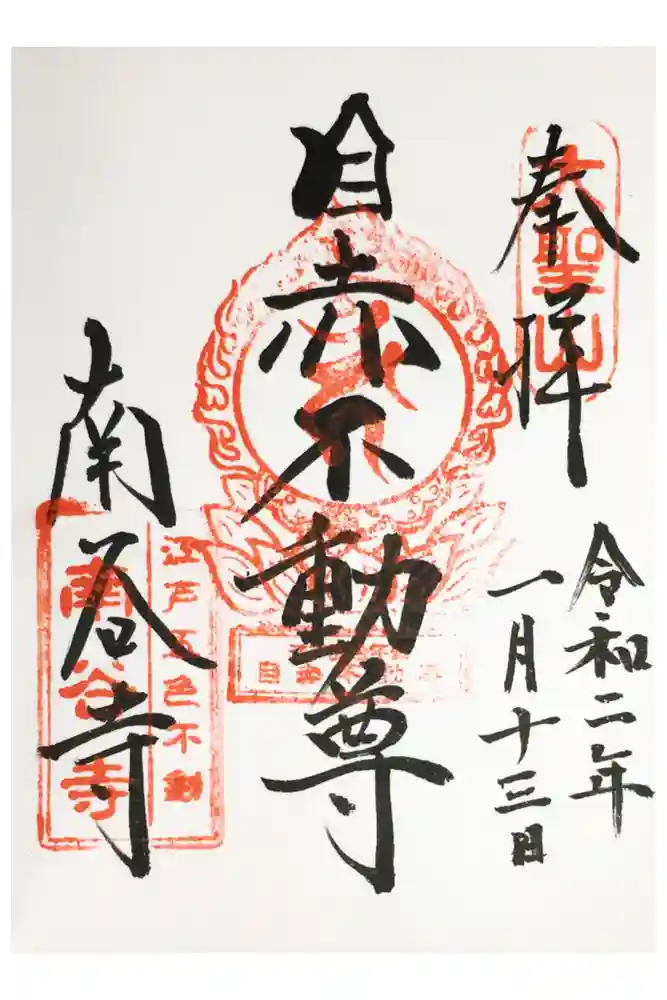 奉拝
大聖山
令和二年
一月十三日
目赤不動尊
南谷寺
江戸五色不動
南谷寺